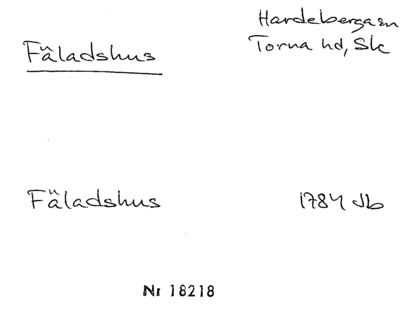 Hardeberga sn
Fäladshus
Torna hd, Sk
Fäladshus
1784 Jb
Nr 18218